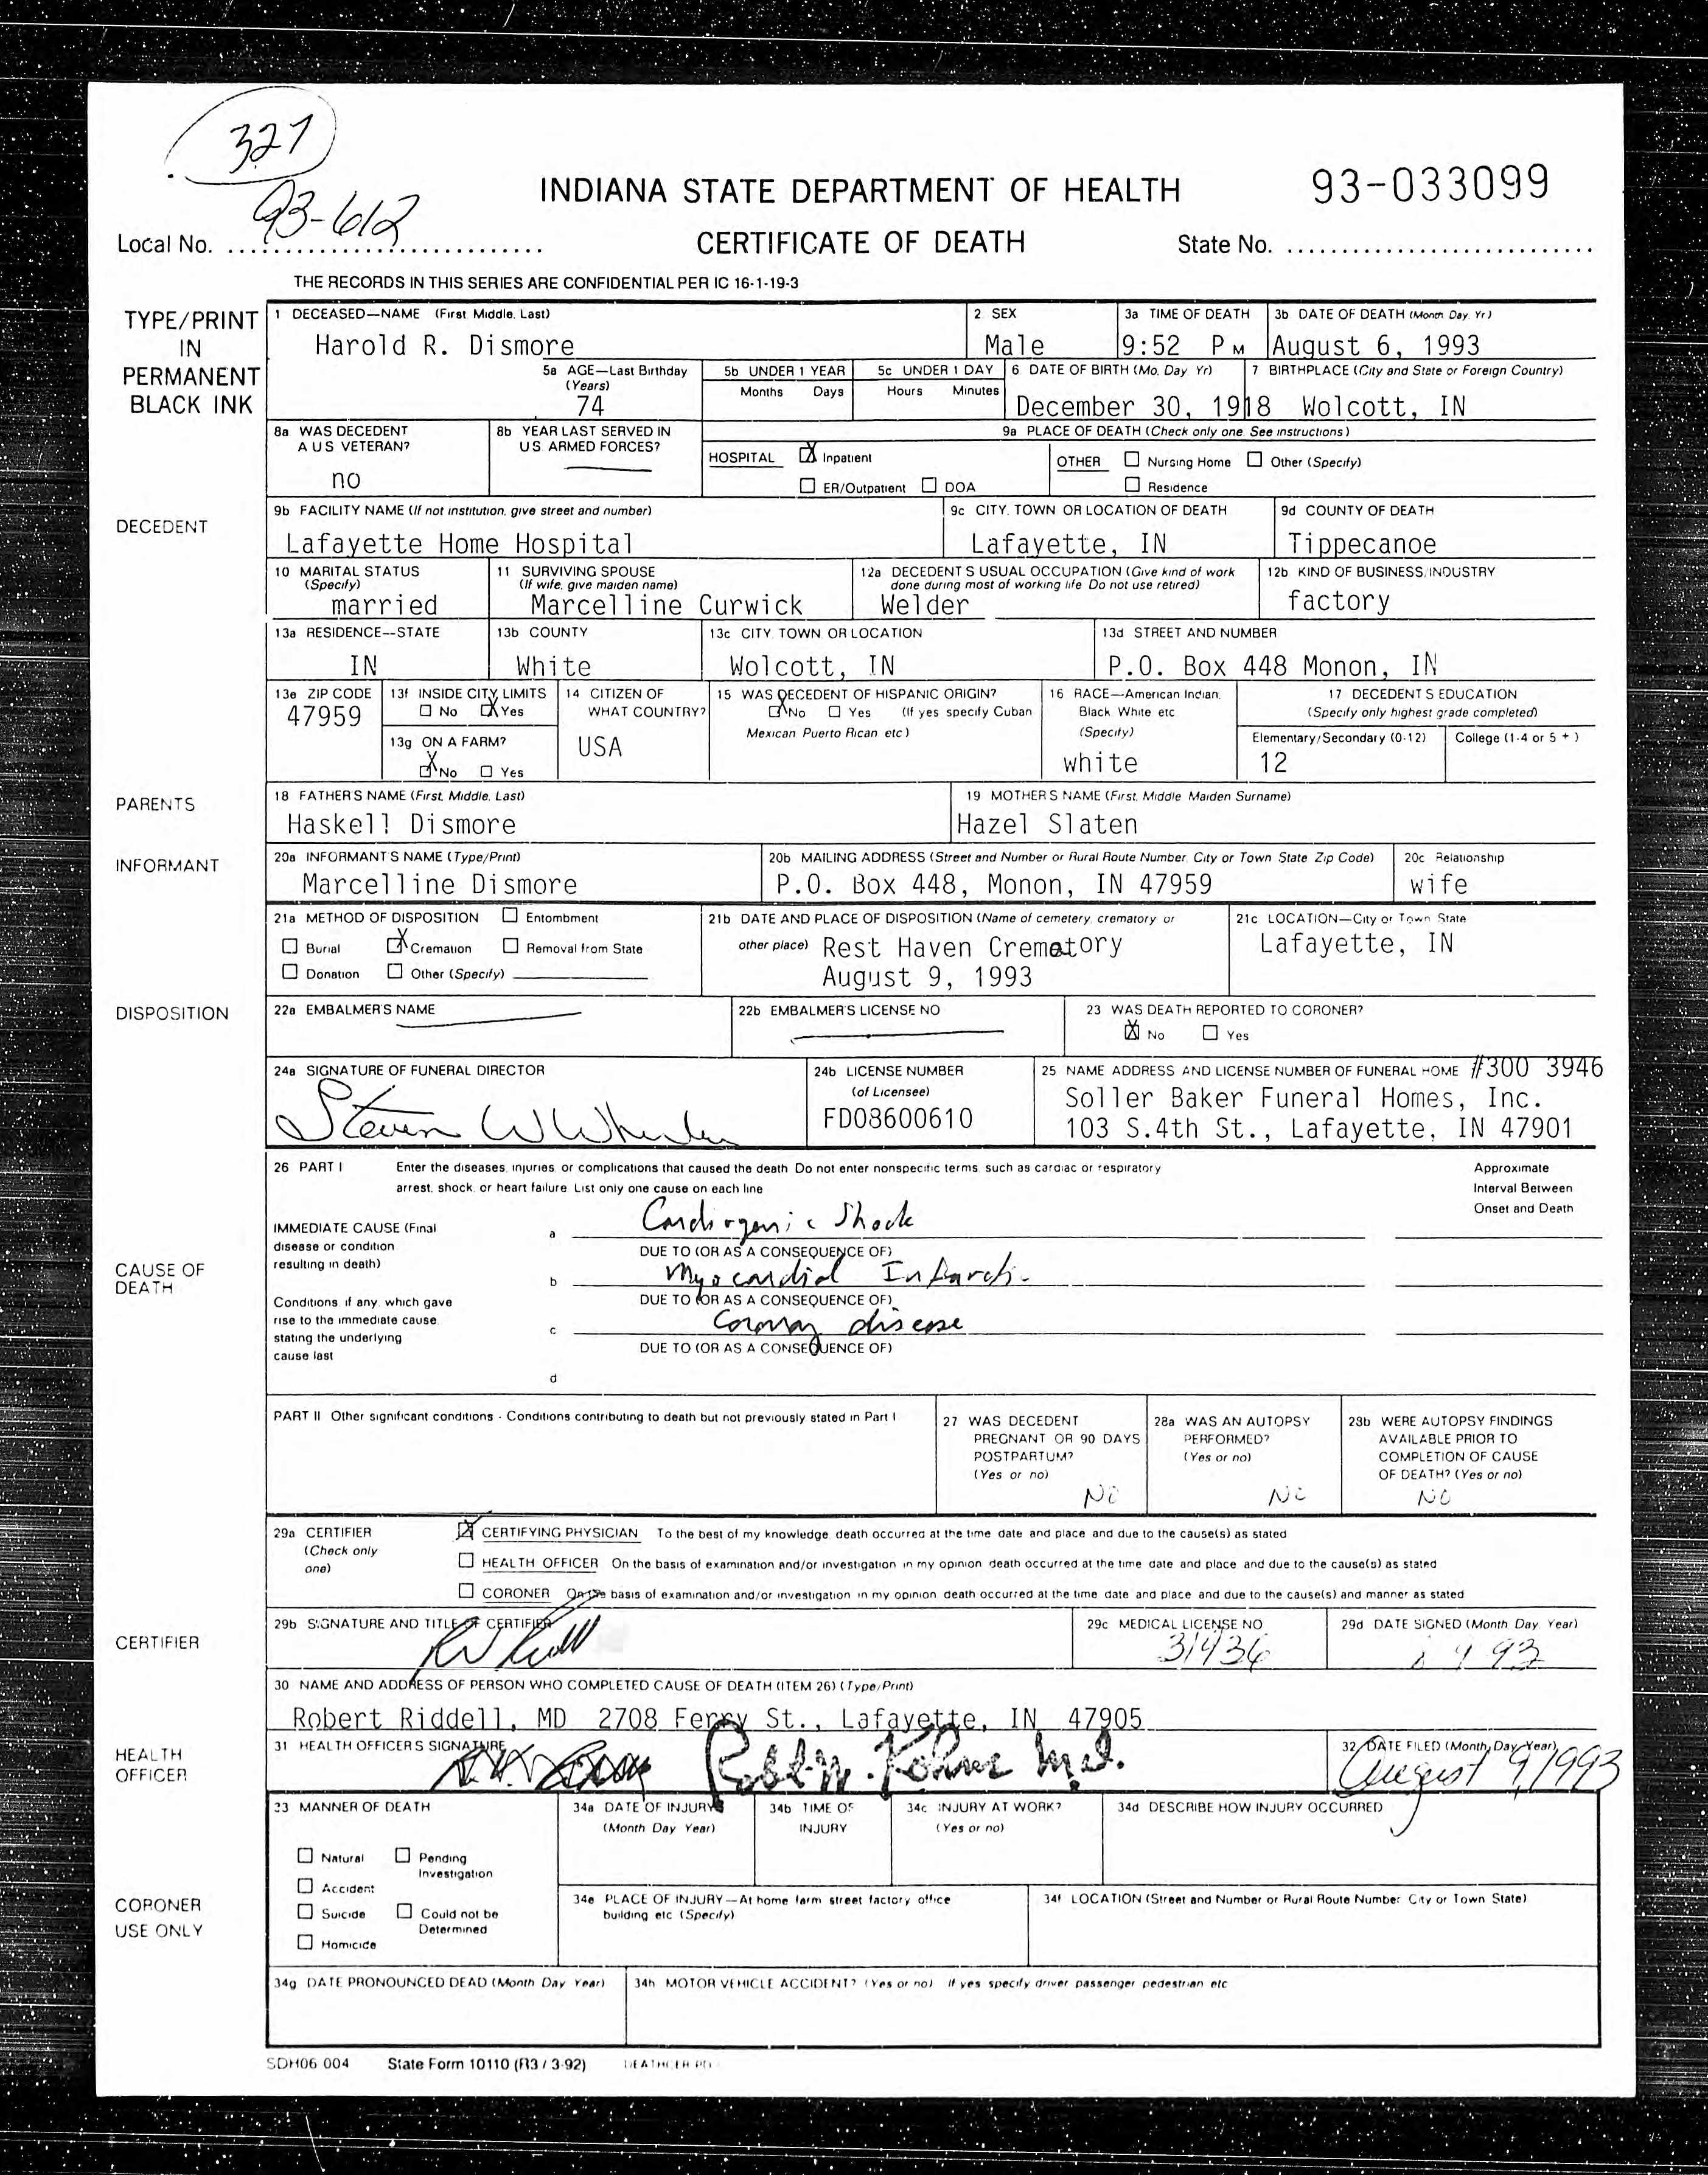 327
93-612
INDIANA STATE DEPARTMENT OF HEALTH
93-033099
Local No.
CERTIFICATE OF DEATH
State No.
THE RECORDS IN THIS SERIES ARE CONFIDENTIAL PER IC 16-1-19-3
TYPE/PRINT
IN
PERMANENT
BLACK INK
1 DECEASED—NAME (First, Middle, Last)
Harold R. Dismore
2 SEX
Male
3a TIME OF DEATH
9:52 P M
3b DATE OF DEATH (Month Day Yr)
August 6, 1993
5a AGE—Last Birthday
(Years)
74
5b UNDER 1 YEAR
Months Days
5c UNDER 1 DAY
Hours Minutes
6 DATE OF BIRTH (Mo, Day, Yr)
December 30, 1918
7 BIRTHPLACE (City and State or Foreign Country)
Wolcott, IN
8a WAS DECEDENT
A US VETERAN?
no
8b YEAR LAST SERVED IN
US ARMED FORCES?
9a PLACE OF DEATH (Check only one. See instructions)
HOSPITAL X Inpatient
ER/Outpatient DOA
OTHER Nursing Home Other (Specify)
Residence
DECEDENT
9b FACILITY NAME (If not institution, give street and number)
Lafayette Home Hospital
9c CITY, TOWN OR LOCATION OF DEATH
Lafayette, IN
9d COUNTY OF DEATH
Tippecanoe
10 MARITAL STATUS
(Specify)
married
11 SURVIVING SPOUSE
(If wife, give maiden name)
Marcelline Curwick
12a DECEDENT S USUAL OCCUPATION (Give kind of work
done during most of working life Do not use retired)
Welder
12b KIND OF BUSINESS/INDUSTRY
factory
13a RESIDENCE--STATE
IN
13b COUNTY
White
13c CITY, TOWN OR LOCATION
Wolcott, IN
13d STREET AND NUMBER
P.O. Box 448 Monon, IN
13e ZIP CODE
47959
13f INSIDE CITY LIMITS
No X Yes
13g ON A FARM?
X No Yes
14 CITIZEN OF
WHAT COUNTRY?
USA
15 WAS DECEDENT OF HISPANIC ORIGIN?
X No Yes (If yes specify Cuban
Mexican Puerto Rican etc)
16 RACE—American Indian,
Black White etc
(Specify)
white
17 DECEDENT S EDUCATION
(Specify only highest grade completed)
Elementary/Secondary (0-12)
12
College (1-4 or 5 + )
PARENTS
18 FATHER'S NAME (First, Middle, Last)
Haskell Dismore
19 MOTHER S NAME (First, Middle Maiden Surname)
Hazel Slaten
INFORMANT
20a INFORMANT S NAME (Type/Print)
Marcelline Dismore
20b MAILING ADDRESS (Street and Number or Rural Route Number, City or Town State Zip Code)
P.O. Box 448, Monon, IN 47959
20c Relationship
wife
21a METHOD OF DISPOSITION Entombment
Burial X Cremation Removal from State
Donation Other (Specify)
21b DATE AND PLACE OF DISPOSITION (Name of cemetery, crematory or
other place) Rest Haven Crematory
August 9, 1993
21c LOCATION—City or Town State
Lafayette, IN
DISPOSITION
22a EMBALMER'S NAME
22b EMBALMER'S LICENSE NO
23 WAS DEATH REPORTED TO CORONER?
X No Yes
24a SIGNATURE OF FUNERAL DIRECTOR
Steven W Wheeler
24b LICENSE NUMBER
(of Licensee)
FD08600610
25 NAME ADDRESS AND LICENSE NUMBER OF FUNERAL HOME #300 3946
Soller Baker Funeral Homes, Inc.
103 S.4th St., Lafayette, IN 47901
26 PART I Enter the diseases, injuries, or complications that caused the death Do not enter nonspecific terms such as cardiac or respiratory
arrest, shock, or heart failure List only one cause on each line
Approximate
Interval Between
Onset and Death
CAUSE OF
DEATH
IMMEDIATE CAUSE (Final
disease or condition
resulting in death)
a Cardiogenic Shock
DUE TO (OR AS A CONSEQUENCE OF)
b Myocardial Infarct
DUE TO (OR AS A CONSEQUENCE OF)
Conditions if any which gave
rise to the immediate cause
stating the underlying
cause last
c Coronary disease
DUE TO (OR AS A CONSEQUENCE OF)
d
PART II Other significant conditions - Conditions contributing to death but not previously stated in Part I
27 WAS DECEDENT
PREGNANT OR 90 DAYS
POSTPARTUM?
(Yes or no)
No
28a WAS AN AUTOPSY
PERFORMED?
(Yes or no)
No
28b WERE AUTOPSY FINDINGS
AVAILABLE PRIOR TO
COMPLETION OF CAUSE
OF DEATH? (Yes or no)
NO
29a CERTIFIER
(Check only
one)
X CERTIFYING PHYSICIAN To the best of my knowledge death occurred at the time date and place and due to the cause(s) as stated
HEALTH OFFICER On the basis of examination and/or investigation in my opinion death occurred at the time date and place and due to the cause(s) as stated
CORONER On the basis of examination and/or investigation in my opinion death occurred at the time date and place and due to the cause(s) and manner as stated
CERTIFIER
29b SIGNATURE AND TITLE OF CERTIFIER
29c MEDICAL LICENSE NO
31436
29d DATE SIGNED (Month Day Year)
93
30 NAME AND ADDRESS OF PERSON WHO COMPLETED CAUSE OF DEATH (ITEM 26) (Type/Print)
Robert Riddell, MD 2708 Ferry St., Lafayette, IN 47905
HEALTH
OFFICER
31 HEALTH OFFICER S SIGNATURE
M.D.
32 DATE FILED (Month, Day, Year)
August 9, 1993
CORONER
USE ONLY
33 MANNER OF DEATH
Natural Pending
Investigation
Accident
Suicide Could not be
Determined
Homicide
34a DATE OF INJURY
(Month Day Year)
34b TIME OF
INJURY
34c INJURY AT WORK?
(Yes or no)
34d DESCRIBE HOW INJURY OCCURRED
34e PLACE OF INJURY—At home farm street factory office
building etc (Specify)
34f LOCATION (Street and Number or Rural Route Number City or Town State)
34g DATE PRONOUNCED DEAD (Month Day Year)
34h MOTOR VEHICLE ACCIDENT? (Yes or no) If yes specify driver passenger pedestrian etc
SDH06 004 State Form 10110 (R3 / 3-92)